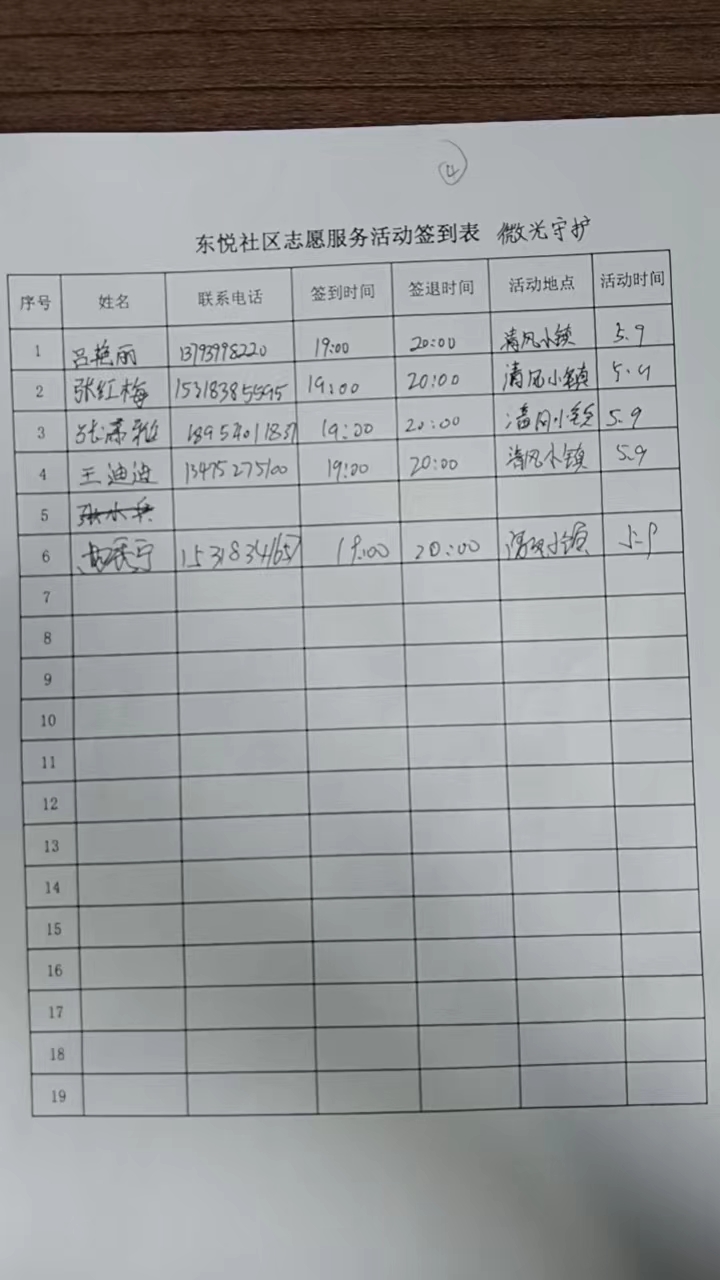 4
东悦社区志愿服务活动签到表 微光守护
序号 姓名 联系电话 签到时间 签退时间 活动地点 活动时间
1 吕艳丽 13793998220 19:00 20:00 清风小镇 5.9
2 张红梅 15318385595 19:00 20:00 清风小镇 5.9
3 19:00 20:00 清风小镇 5.9
4 王迪迪 13475275100 19:00 20:00 清风小镇 5.9
5 张水兵
6 15318341657 19:00 20:00 清风小镇 5.9
7
8
9
10
11
12
13
14
15
16
17
18
19